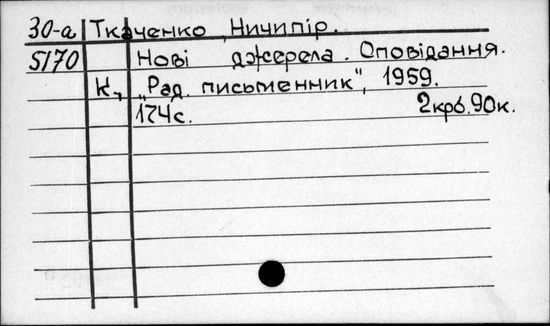 30-а Ткаченко, Ничипір.
5170 Нові джерела. Оповідання.
К., „Рад. письменник", 1959.
174с. 2крб.90к.